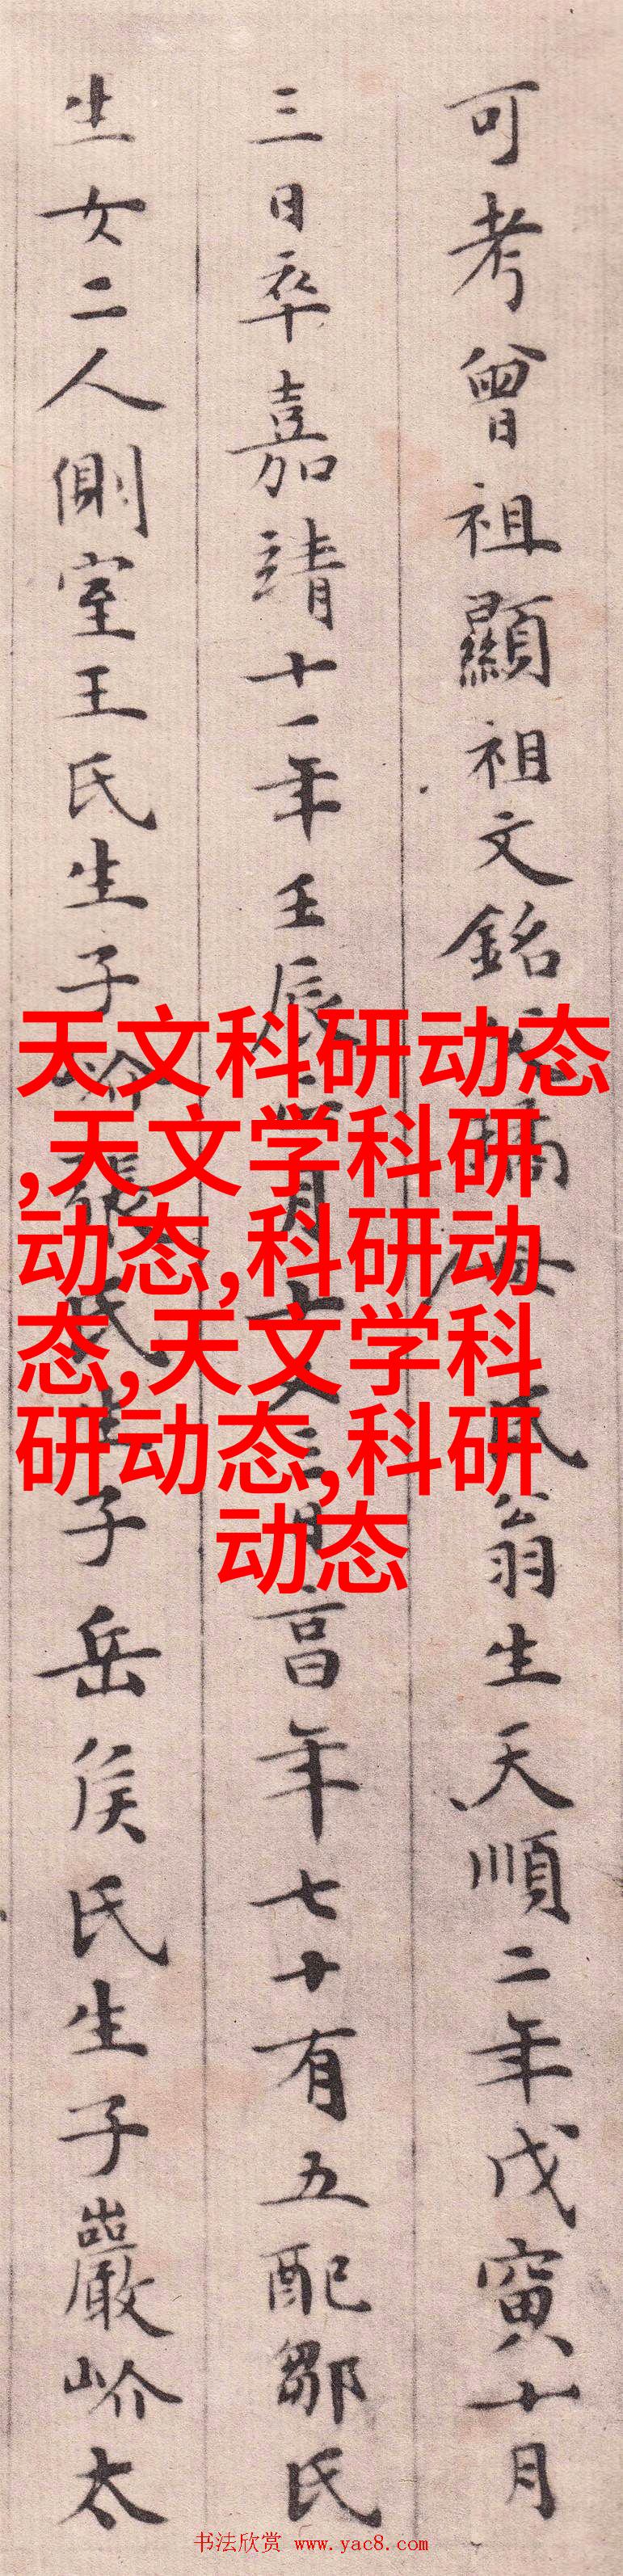 可考曾祖顯祖文銘氏翁生天順二年戊寅十月
三日卒嘉靖十一年壬辰月十又三日享年七十有五配鄒氏
生女二人側室王氏生子岕張氏生子岳侯氏生子巖岕太
天文科研动态
,天文学科研
动态,科研动
态,天文学科
研动态,科研
动态
书法欣赏 www.yac8.com